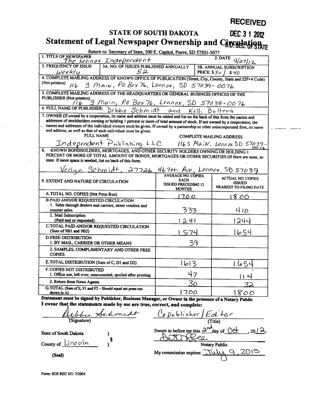 RECEIVED
DEC 31 2012
STATE OF SOUTH DAKOTA
Statement of Legal Newspaper Ownership and Circulation
S.D. SEC. OF STATE
Return to: Secretary of State, 500 E. Capitol, Pierre, SD 57501-5077
1. TITLE OF NEWSPAPER
The Lennox Independent
2. DATE
9/27/12
3. FREQUENCY OF ISSUE
Weekly
3A. NO. OF ISSUES PUBLISHED ANNUALLY
52
3B. ANNUAL SUBSCRIPTION
PRICE
4. COMPLETE MAILING ADDRESS OF KNOWN OFFICE OF PUBLICATION (Street, City, County, State and ZIP+4 Code)
(Not printers)
116 S Main, Po Box 76, Lennox, SD 57039-0076
5. COMPLETE MAILING ADDRESS OF THE HEADQUARTERS OR GENERAL BUSINESS OFFICES OF THE
PUBLISHER (Not printers)
116 S Main, Po Box 76, Lennox, SD 57039-0076
6. FULL NAME OF PUBLISHER: Debbie Schmidt and Kelli Bultena
7. OWNER (If owned by a corporation, its name and address must be stated and
addresses of stockholders owning or holding 1 percent or more of total amount of stock. If not owned by a corporation, the
names and addresses of the individual owners must be given. If owned by a partnership or other unincorporated firm, its name
and address, as well as that of each individual must be given.
FULL NAME
COMPLETE MAILING ADDRESS
Independent Publishing LLC
116 S Main, Lennox SD 57039-0076
8. KNOWN BONDHOLDERS, MORTGAGES, AND OTHER SECURITY HOLDERS OWNING OR HOLDING 1
PERCENT OR MORE OF TOTAL AMOUNT OF BONDS, MORTGAGES OR OTHER SECURITIES (If there are none, so
state. If more space is needed, list on back of this form.
Schmidt, 27726 467th Ave, Lennox, SD 57039
9. EXTENT AND NATURE OF CIRCULATION
AVERAGE NO. COPIES
EACH
ISSUED PRECEDING 12
MONTHS
ACTUAL NO. COPIES
ISSUED
NEAREST TO FILING DATE
A. TOTAL NO. COPIES (Net Press Run)
1700
1800
B. PAID AND/OR REQUESTED CIRCULATION
1. Sales through dealers and carriers, street vendors and
counter sales
333
410
2. Mail Subscription
(Paid and or requested)
1241
1244
C. TOTAL PAID AND/OR REQUESTED CIRCULATION
(Sum of 9B1 and 9B2)
1574
1654
D. FREE DISTRIBUTION
1. BY MAIL, CARRIER OR OTHER MEANS
39
2. SAMPLES, COMPLIMENTARY AND OTHER FREE
COPIES
E. TOTAL DISTRIBUTION (Sum of C, D1 and D2)
1613
1654
F. COPIES NOT DISTRIBUTED
1. Office use, left over, unaccounted, spoiled after printing
47
114
2. Return from News Agents
30
32
G. TOTAL (Sum of E, F1 and F2 - Should equal net press run
shown in A)
1700
1800
Statement must be signed by Publisher, Business Manager, or Owner in the presence of a Notary Public
I swear that the statements made by me are true, correct, and complete:
Debbie Schmidt
(Signature)
Copublisher/Editor
(Title)
State of South Dakota )
§
County of Lincoln )
(Seal)
Sworn to before me this 2nd day of Oct, 2012
Notary Public
My commission expires: July 9, 2015
Form: SOS REC 051 7/2004